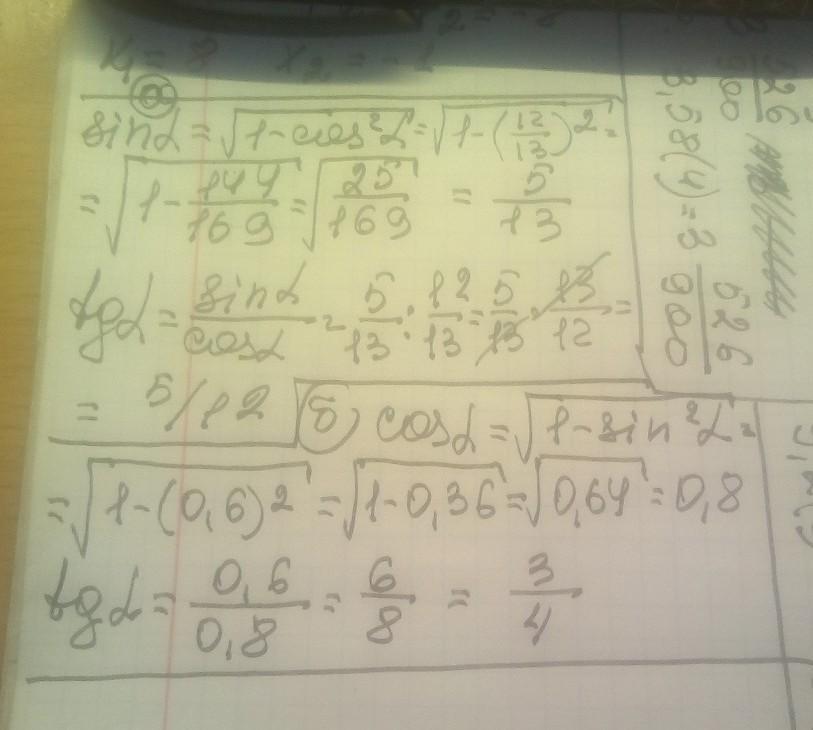 x₁ = 8 x₂ = -1
а
sinα = √(1 - cos²α) = √(1 - (12/13)²) =
= √(1 - 144/169) = √(25/169) = 5/13
tgα = sinα/cosα = 5/13 : 12/13 = 5/13 · 13/12 =
= 5/12
б) cosα = √(1 - sin²α) =
= √(1 - (0,6)²) = √(1 - 0,36) = √0,64 = 0,8
tgα = 0,6/0,8 = 6/8 = 3/4
3,58(4) = 3 526/900